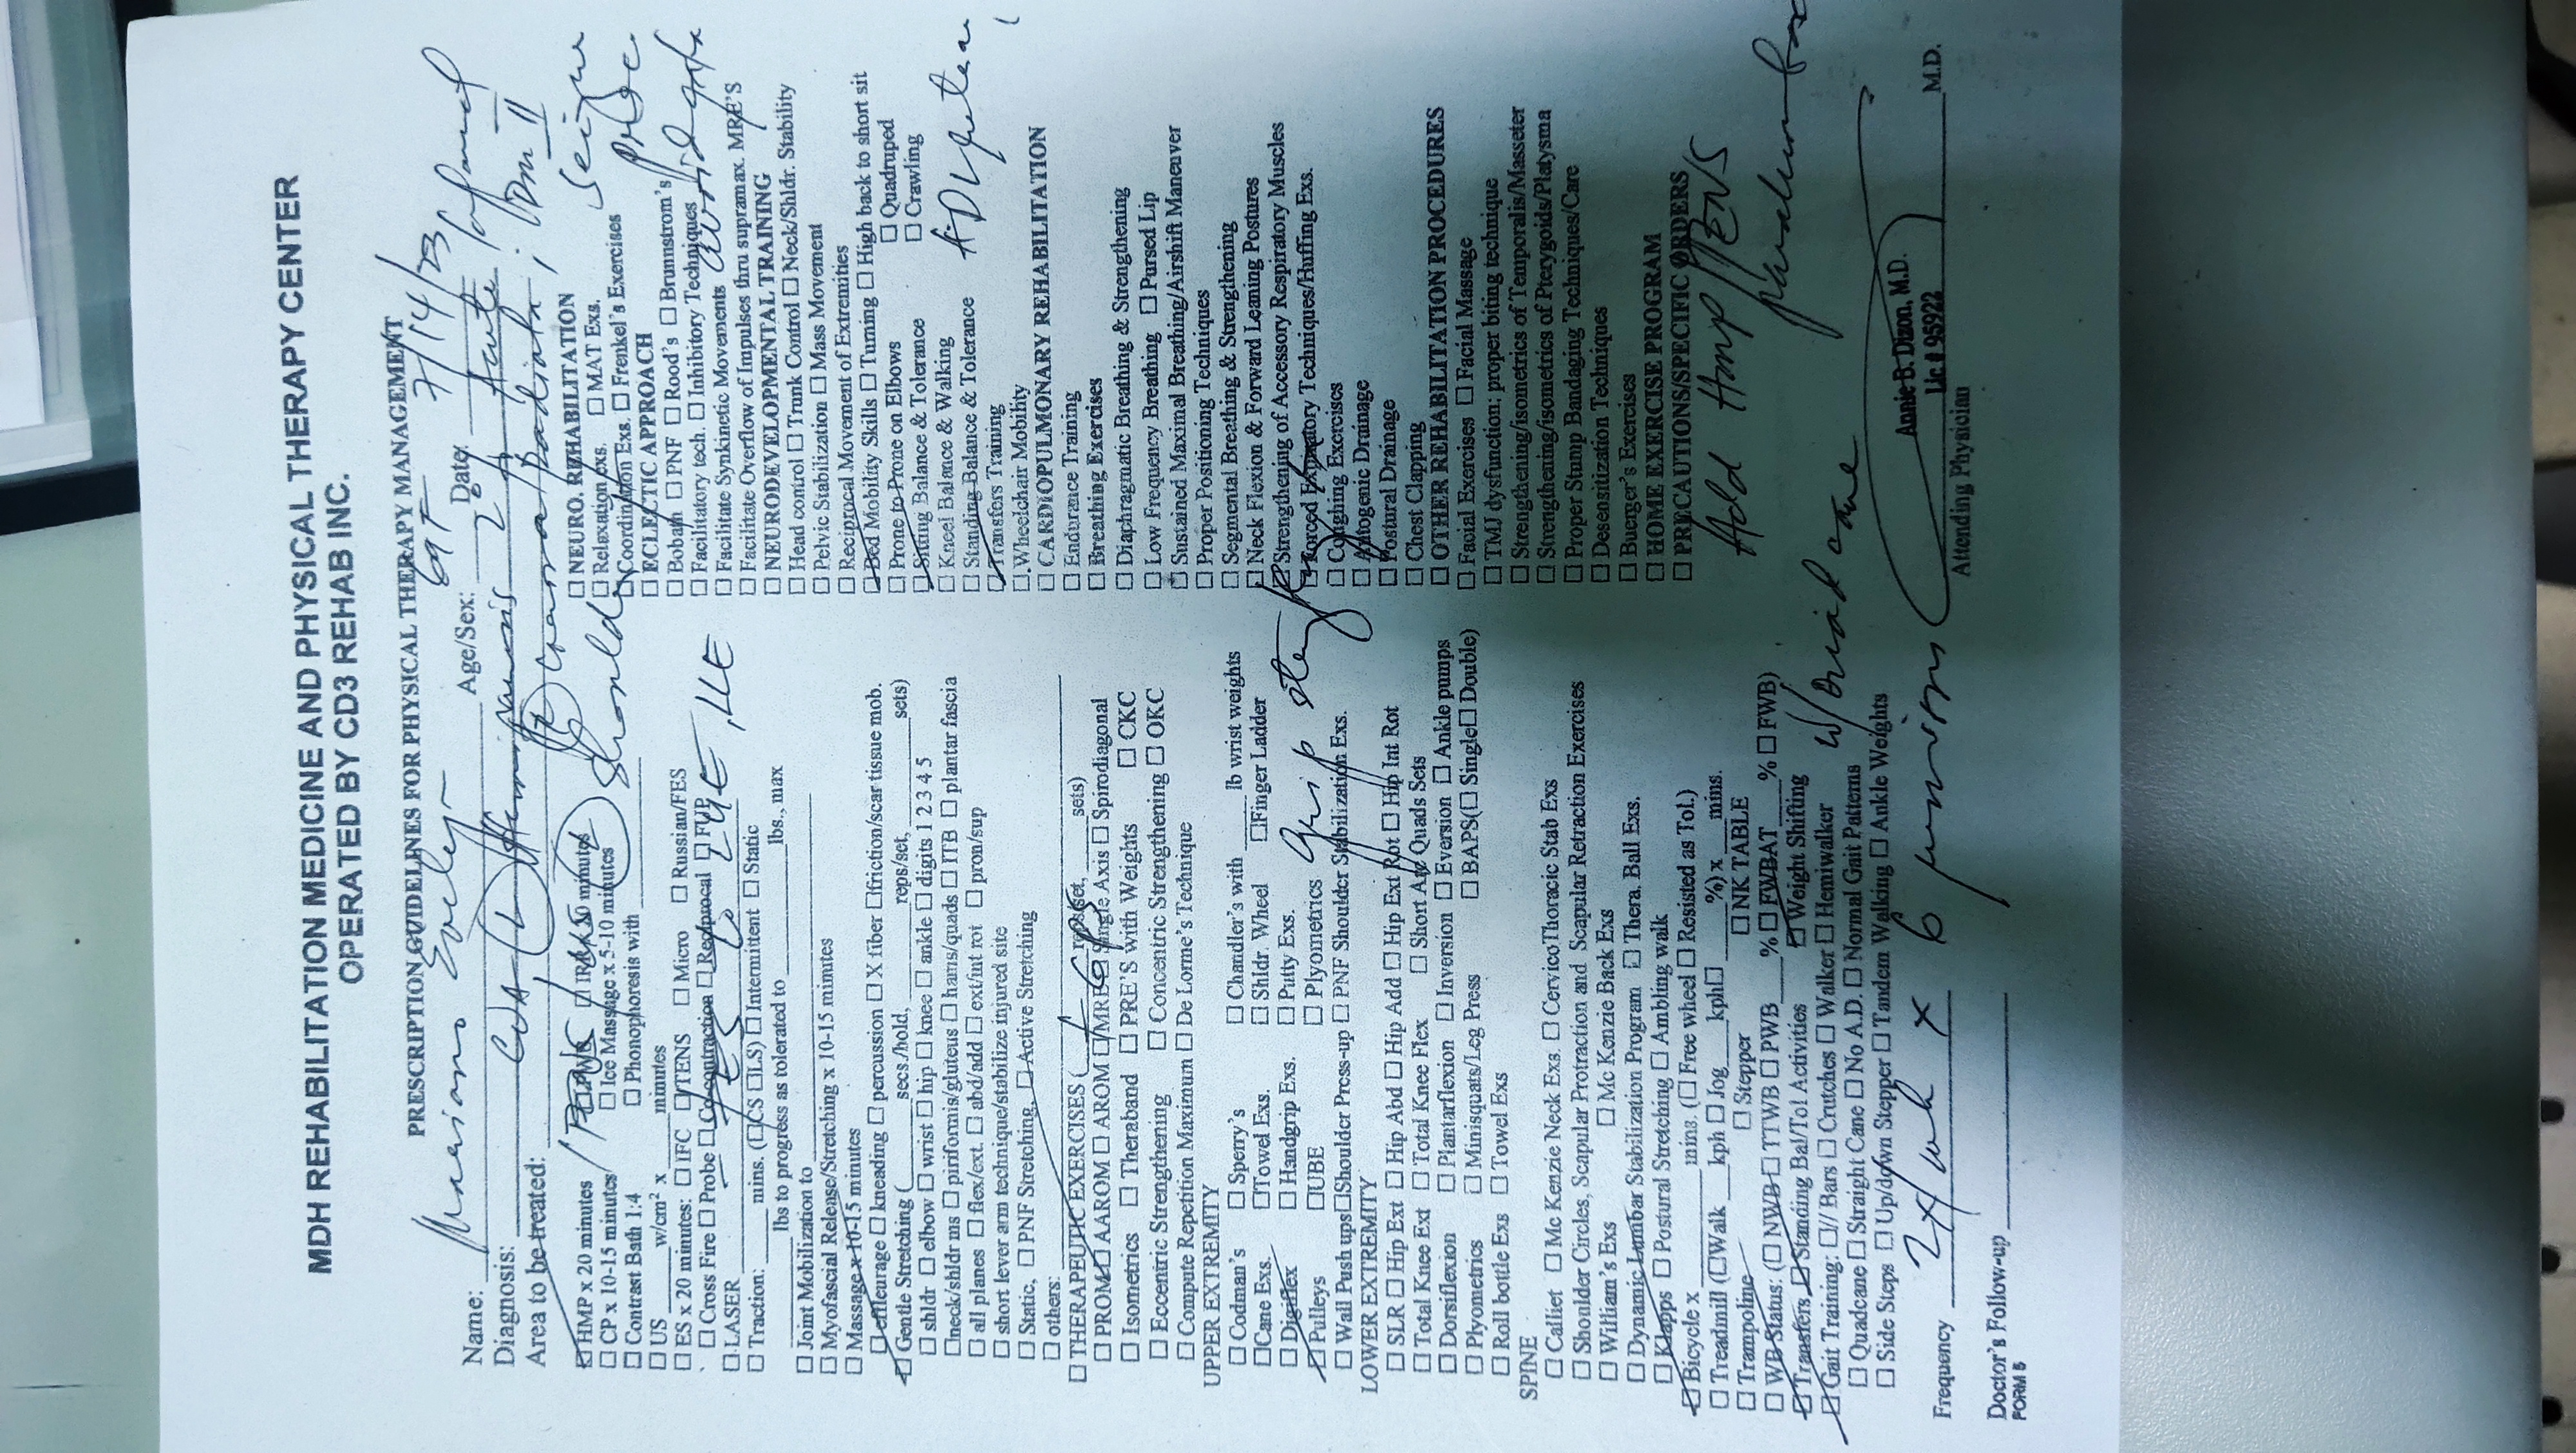 MDH REHABILITATION MEDICINE AND PHYSICAL THERAPY CENTER
OPERATED BY CD3 REHAB INC.
PRESCRIPTION GUIDELINES FOR PHYSICAL THERAPY MANAGEMENT
Name: Mariano Evelyn Age/Sex: 69F Date: 7/14/23
Diagnosis: CVA (L) Hemiparesis 2° to Acute Infarct
Area to be treated: (R) corona radiata ; DM II
☑ HMP x 20 minutes ☐ PWB ☐ IRR x 20 minutes / TENS / US (L) shoulder
☐ CP x 10-15 minutes ☐ Ice Massage x 5-10 minutes
☐ Contrast Bath 1:4 ☐ Phonophoresis with
☐ US ____ w/cm² x ____ minutes
☐ ES x 20 minutes: ☐ IFC ☐ TENS ☐ Micro ☐ Russian/FES
☐ Cross Fire ☐ Probe ☐ Co-contraction ☐ Reciprocal ☐ FUP
FES to LUE, LLE
☐ LASER
☐ Traction: ____ mins. (☐CS ☐LS) ☐ Intermittent ☐ Static
____ lbs to progress as tolerated to ____ lbs., max
☐ Joint Mobilization to
☐ Myofascial Release/Stretching x 10-15 minutes
☐ Massage x 10-15 minutes
☐ effleurage ☐ kneading ☐ percussion ☐ X fiber ☐friction/scar tissue mob.
☑ Gentle Stretching (____ secs./hold, ____ reps/set, ____ sets)
☐ shldr ☐ elbow ☐ wrist ☐ hip ☐ knee ☐ ankle ☐ digits 1 2 3 4 5
☐neck/shldr ms ☐ piriformis/gluteus ☐ hams/quads ☐ ITB ☐ plantar fascia
☐ all planes ☐ flex/ext. ☐ abd/add ☐ ext/int rot ☐ pron/sup
☐ short lever arm technique/stabilize injured site
☐ Static, ☐ PNF Stretching, ☐ Active Stretching
☐ others:
☐ THERAPEUTIC EXERCISES (____ reps/set, ____ sets)
☐ PROM ☑ AAROM ☐ AROM ☐ MRE ☐ Single Axis ☐ Spirodiagonal
☐ Isometrics ☐ Theraband ☐ PRE'S with Weights ☐ CKC
☐ Eccentric Strengthening ☐ Concentric Strengthening ☐ OKC
☐ Compute Repetition Maximum ☐ De Lorme's Technique
UPPER EXTREMITY
☐ Codman's ☐ Sperry's ☐ Chandler's with ____ lb wrist weights
☐Cane Exs. ☐Towel Exs. ☐ Shldr. Wheel ☐Finger Ladder
☐ Digiflex ☐ Handgrip Exs. ☐ Putty Exs.
☑ Pulleys ☐UBE ☐ Plyometrics grip
☐ Wall Push ups☐Shoulder Press-up ☐ PNF Shoulder Stabilization Exs.
LOWER EXTREMITY
☐ SLR ☐ Hip Ext ☐ Hip Abd ☐ Hip Add ☐ Hip Ext Rot ☐ Hip Int Rot
☐ Total Knee Ext ☐ Total Knee Flex ☐ Short Arc Quads Sets
☐ Dorsiflexion ☐ Plantarflexion ☐ Inversion ☐ Eversion ☐ Ankle pumps
☐ Plyometrics ☐ Minisquats/Leg Press ☐ BAPS(☐ Single☐ Double)
☐ Roll bottle Exs ☐ Towel Exs
SPINE
☐ Calliet ☐ Mc Kenzie Neck Exs. ☐ CervicoThoracic Stab Exs
☐ Shoulder Circles, Scapular Protraction and Scapular Retraction Exercises
☐ William's Exs ☐ Mc Kenzie Back Exs
☐ Dynamic Lumbar Stabilization Program ☐ Thera. Ball Exs.
☐ Klapps ☐ Postural Stretching ☐ Ambling walk
☑ Bicycle x ____ mins. (☐ Free wheel ☐ Resisted as Tol.)
☐ Treadmill (☐Walk ___kph ☐ Jog___kph☐ ____%) x ___mins.
☐ Trampoline ☐ Stepper ☐NK TABLE
☐ WB Status: (☐ NWB☐ TTWB ☐ PWB___% ☐ FWBAT___% ☐ FWB)
☑ Transfers, ☑ Standing Bal/Tol Activities ☑ Weight Shifting
☑ Gait Training: ☐// Bars ☐ Crutches ☐ Walker ☐ Hemiwalker w/ quad cane
☐ Quadcane ☐ Straight Cane ☐ No A.D. ☐ Normal Gait Patterns
☐ Side Steps ☐ Up/down Stepper ☐ Tandem Walking ☐ Ankle Weights
Frequency 2x/wk x 6 sessions
Doctor's Follow-up
FORM 5
☐ NEURO. REHABILITATION
☐ Relaxation exs. ☐ MAT Exs. Seizure
☑ Coordination Exs. ☐ Frenkel's Exercises prec
☐ ECLECTIC APPROACH
☐ Bobath ☐ PNF ☐ Rood's ☐ Brunnstrom's
☐ Facilitatory tech. ☐ Inhibitory Techniques avoid
☐ Facilitate Synkinetic Movements
☐ Facilitate Overflow of Impulses thru supramax. MRE'S
☐ NEURODEVELOPMENTAL TRAINING
☐ Head control ☐ Trunk Control ☐ Neck/Shldr. Stability
☐ Pelvic Stabilization ☐ Mass Movement
☐ Reciprocal Movement of Extremities
☑ Bed Mobility Skills ☐ Turning ☐ High back to short sit
☐ Prone to Prone on Elbows ☐ Quadruped
☑ Sitting Balance & Tolerance ☐ Crawling
☐ Kneel Balance & Walking
☐ Standing Balance & Tolerance
☑ Transfers Training
☐ Wheelchair Mobility
☐ CARDIOPULMONARY REHABILITATION
☐ Endurance Training
☐ Breathing Exercises
☐ Diaphragmatic Breathing & Strengthening
☐ Low Frequency Breathing ☐ Pursed Lip
☐ Sustained Maximal Breathing/Airshift Maneuver
☐ Proper Positioning Techniques
☐ Segmental Breathing & Strengthening
☐ Neck Flexion & Forward Leaning Postures
☐ Strengthening of Accessory Respiratory Muscles
☐ Forced Expiratory Techniques/Huffing Exs.
☐ Coughing Exercises
☐ Autogenic Drainage
☐ Postural Drainage
☐ Chest Clapping
☐ OTHER REHABILITATION PROCEDURES
☐ Facial Exercises ☐ Facial Massage
☐ TMJ dysfunction; proper biting technique
☐ Strengthening/isometrics of Temporalis/Masseter
☐ Strengthening/isometrics of Pterygoids/Platysma
☐ Proper Stump Bandaging Techniques/Care
☐ Desensitization Techniques
☐ Buerger's Exercises
☐ HOME EXERCISE PROGRAM
☐ PRECAUTIONS/SPECIFIC ORDERS
Add HMP/TENS
Annie B. Dizon, M.D.
Lic # 95922
M.D.
Attending Physician